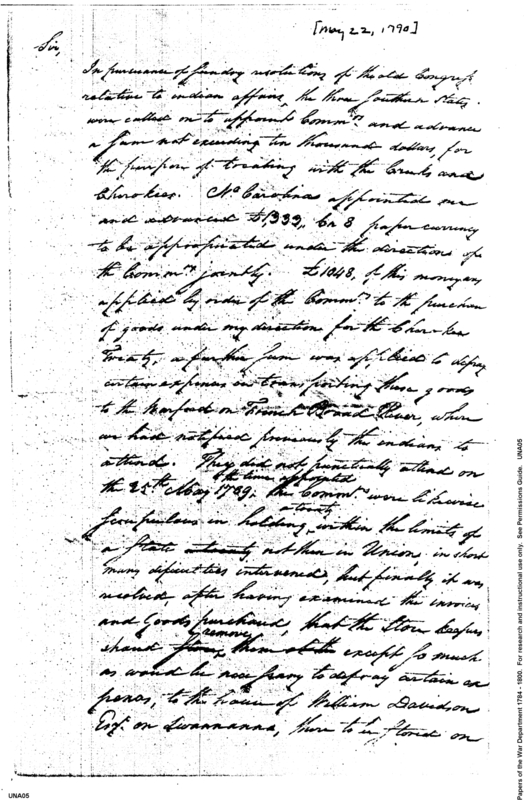 [May 22, 1790]
Sir,
In pursuance of sundry resolutions of the old Congress
relative to indian affairs, the three Southern States
were called on to appoint Commrs. and advance
a sum not exceeding ten thousand dollars, for
the purpose of treating with the Creeks and
Cherokees. No. Carolina appointed one
and advanced 8 paper currency
to be appropriated under the directions of
the Commrs. jointly. £1048, of this money was
applied by order of the Commrs. to the purchase
of goods under my direction for the Cherokee
Treaty, a further sum was applied to defray
certain expences in transporting these goods
to the Warford on French Broad River, where
we had notified previously the indians to
attend. They did not punctually attend on
the time appointed
the 25th May 1789; the Commrs. were likewise
a treaty
scrupulous in holding within the limits of
a State not then in Union, in short
many difficulties intervened, but finally it was
resolved, after having examined the invoices
and Goods purchased, that the Store keepers
remove
shoud them except so much
as would be necessary to defray certain ex
pences, to the house of William Davidson
Esqr. on Swannanna, there to be stored on
UNA05
Papers of the War Department 1784 - 1800. For research and instructional use only. See Permissions Guide. UNA05